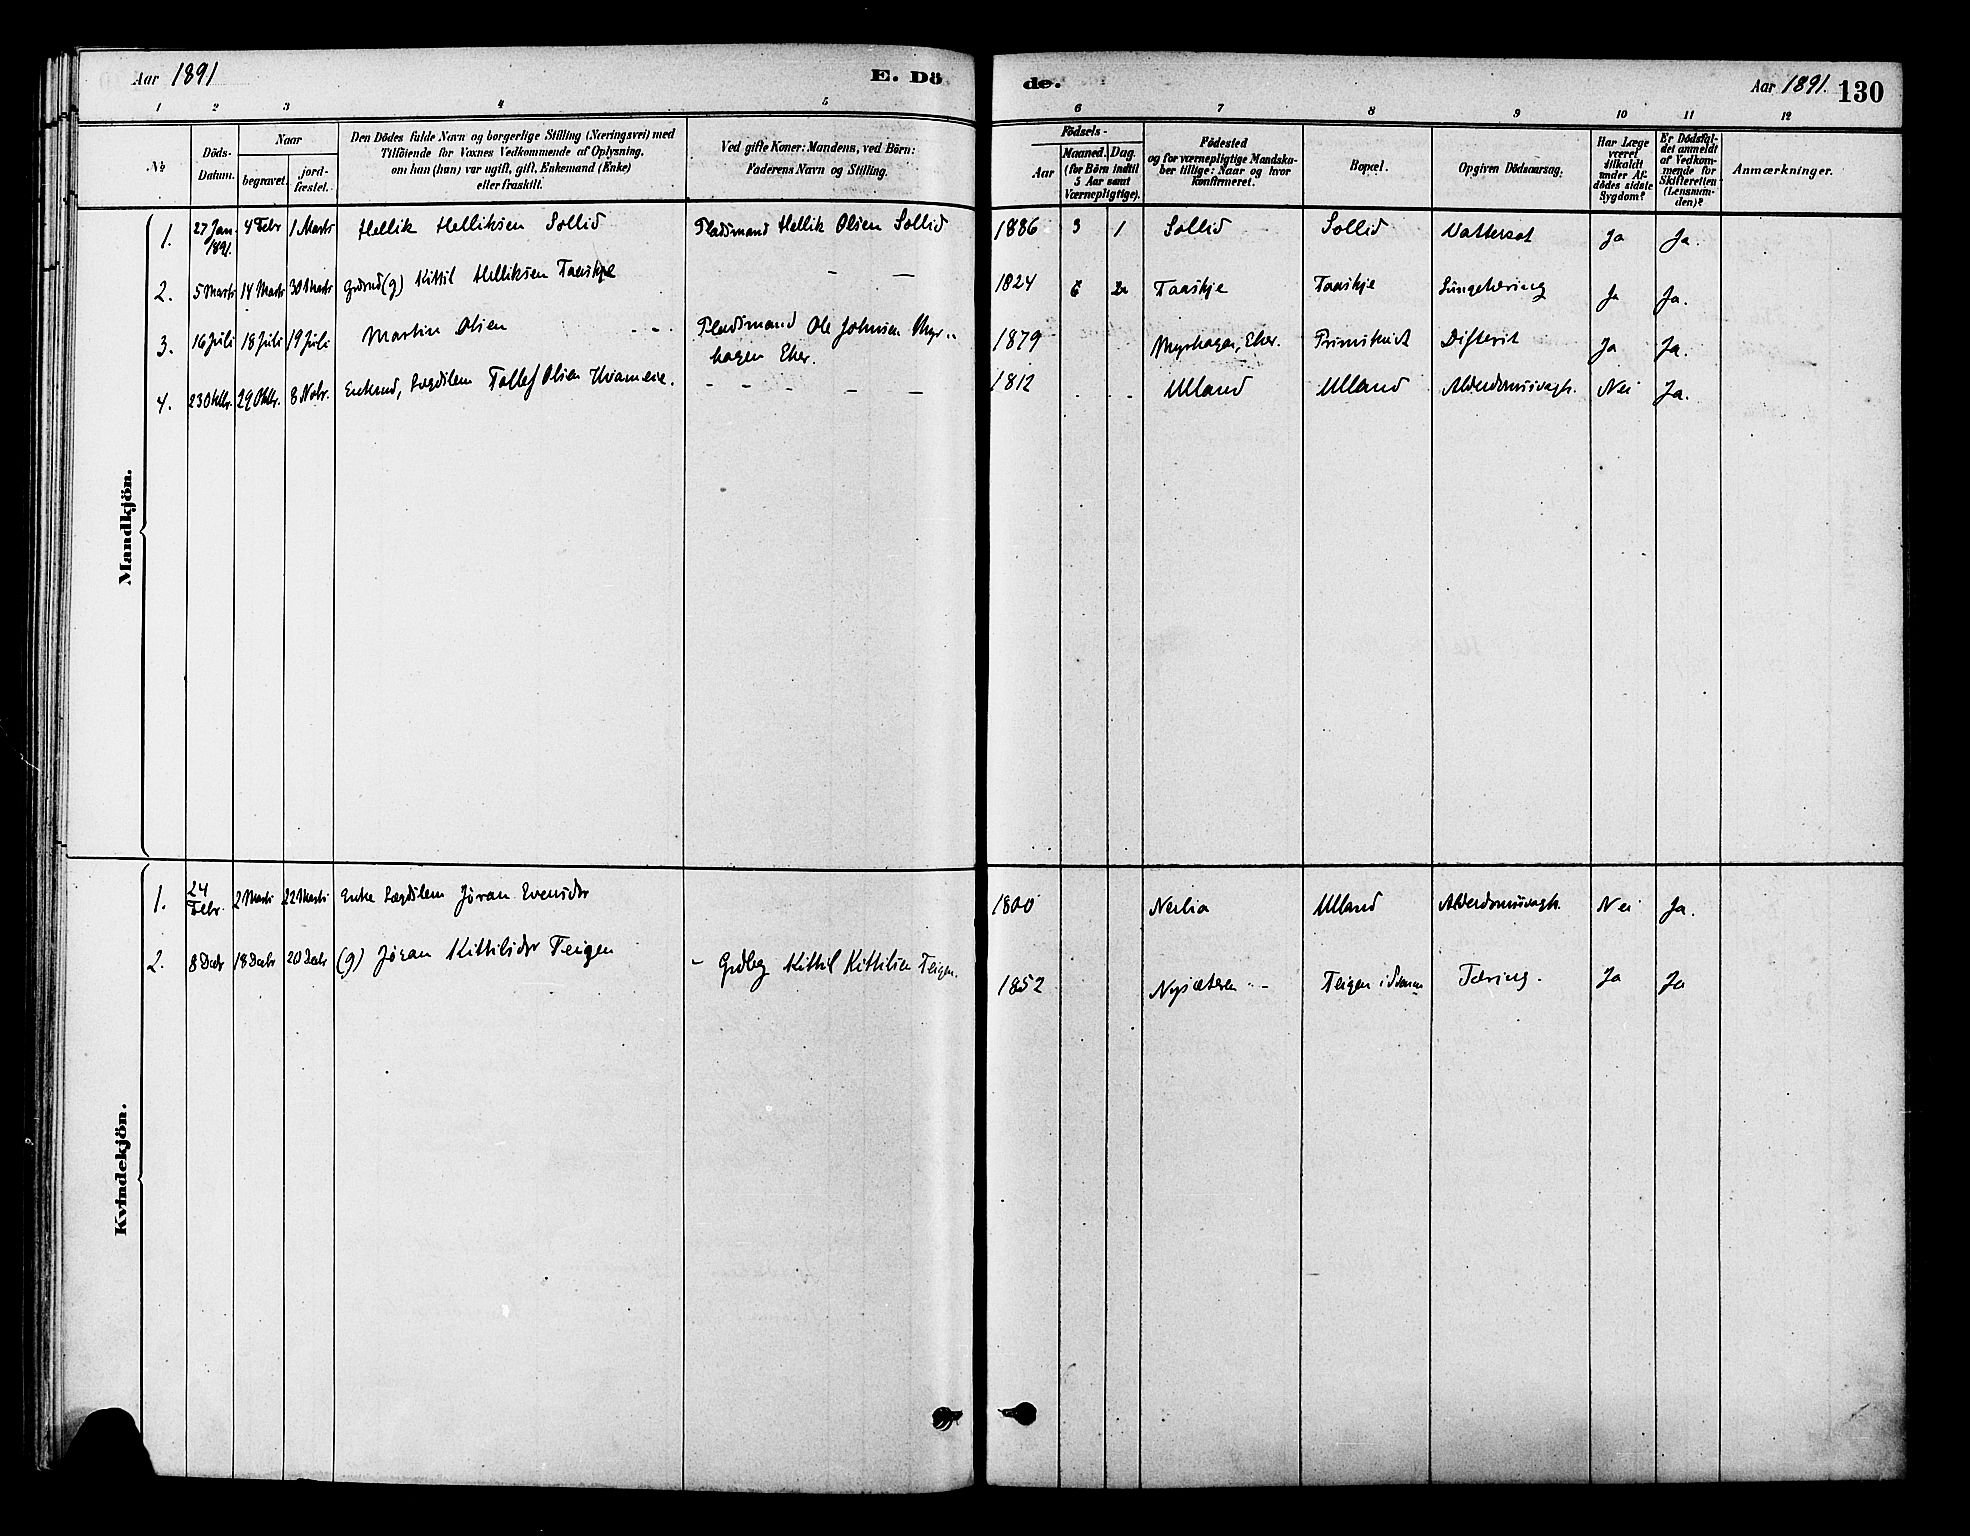 Aar 1891
E. Dö
de.
Aar 1891.
130
1 2 3 4 5 6 7 8 9 10 11 12
No.
Döds-
Datum.
Naar
begravet.
jord-
fæstet.
Den Dödes fulde Navn og borgerlige Stilling (Næringsvei) med
Tilföiende for Voxnes Vedkommende af Oplysning,
om han (hun) var ugift, gift, Enkemand (Enke)
eller fraskilt.
Ved gifte Koner: Mandens, ved Börn:
Faderens Navn og Stilling.
Födsels-
Aar
Maaned. Dag.
(for Børn indtil
5 Aar samt
Værnepligtige).
Födested
og for værnepligtige Mandska-
ber tillige: Naar og hvor
konfirmeret.
Bopæl.
Opgiven Dödsaarsag.
Har Læge
været
tilkaldt
under Af-
dödes sidste
Sygdom?
Er Dödsfal-
det anmeldt
af Vedkom-
mende for
Skifteretten
(Lensman-
den)?
Anmærkninger.
Mandkjön.
1. 27 Jan. 1891. 4 Febr 1 Marts Hellik Helliksen Sollid Pladsmand Hellik Olsen Sollid 1886 3 1 Sollid Sollid Vattersot Ja Ja.
2. 5 Marts 14 Marts 30 Marts (g) Kittil Helliksen Taaskje – – 1824 6 Taaskje Taaskje Lungetæring Ja Ja.
3. 16 Juli 18 Juli 19 Juli Martin Olsen Pladsmand Ole Johnsen Myr-
hagen Eker. 1879 Myrhagen, Eker. Difterit Ja Ja.
4. 23 Oktbr. 29 Oktbr. 8 Nobr. Enkemd, Lægdslem Tollef Olsen Kvameie. 1812 Ulland Ulland Alderdomssvagh. Nei Ja.
Kvindekjön.
1. 24 Febr. 2 Marts 22 Marts Enke Lægdslem Jøran Evensdr 1800 Nerlia Ulland Alderdomssvagh. Nei Ja.
2. 8 Decbr 18 Decbr 20 Decbr (g) Jøran Kittilsdr Teigen – Kittil Kittilsen Teigen. 1852 Nysæteren Teigen Tæring. Ja Ja